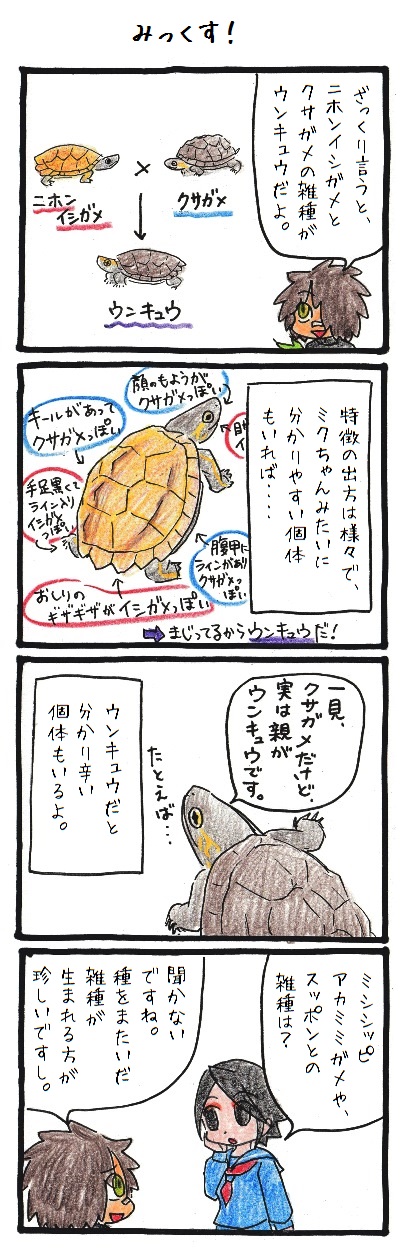 みっくす！
ざっくり言うと、
ニホンイシガメと
クサガメの雑種が
ウンキュウだよ。
ニホン
イシガメ
×
クサガメ
ウンキュウ
特徴の出方は様々で、
ミクちゃんみたいに
分かりやすい個体
もいれば・・・・
顔のもようが
クサガメっぽい
キールがあって
クサガメっぽい
手足黒くて
ライン入り
イシガメ
っぽい
腹甲に
ラインがあり
クサガメっ
ぽい
おしりの
ギザギザがイシガメっぽい
➡まじってるからウンキュウだ！
一見、
クサガメだけど、
実は親が
ウンキュウです。
たとえば・・・
ウンキュウだと
分かり辛い
個体もいるよ。
ミシシッピ
アカミミガメや、
スッポンとの
雑種は？
聞かない
ですね。
種をまたいだ
雑種が
生まれる方が
珍しいですし。